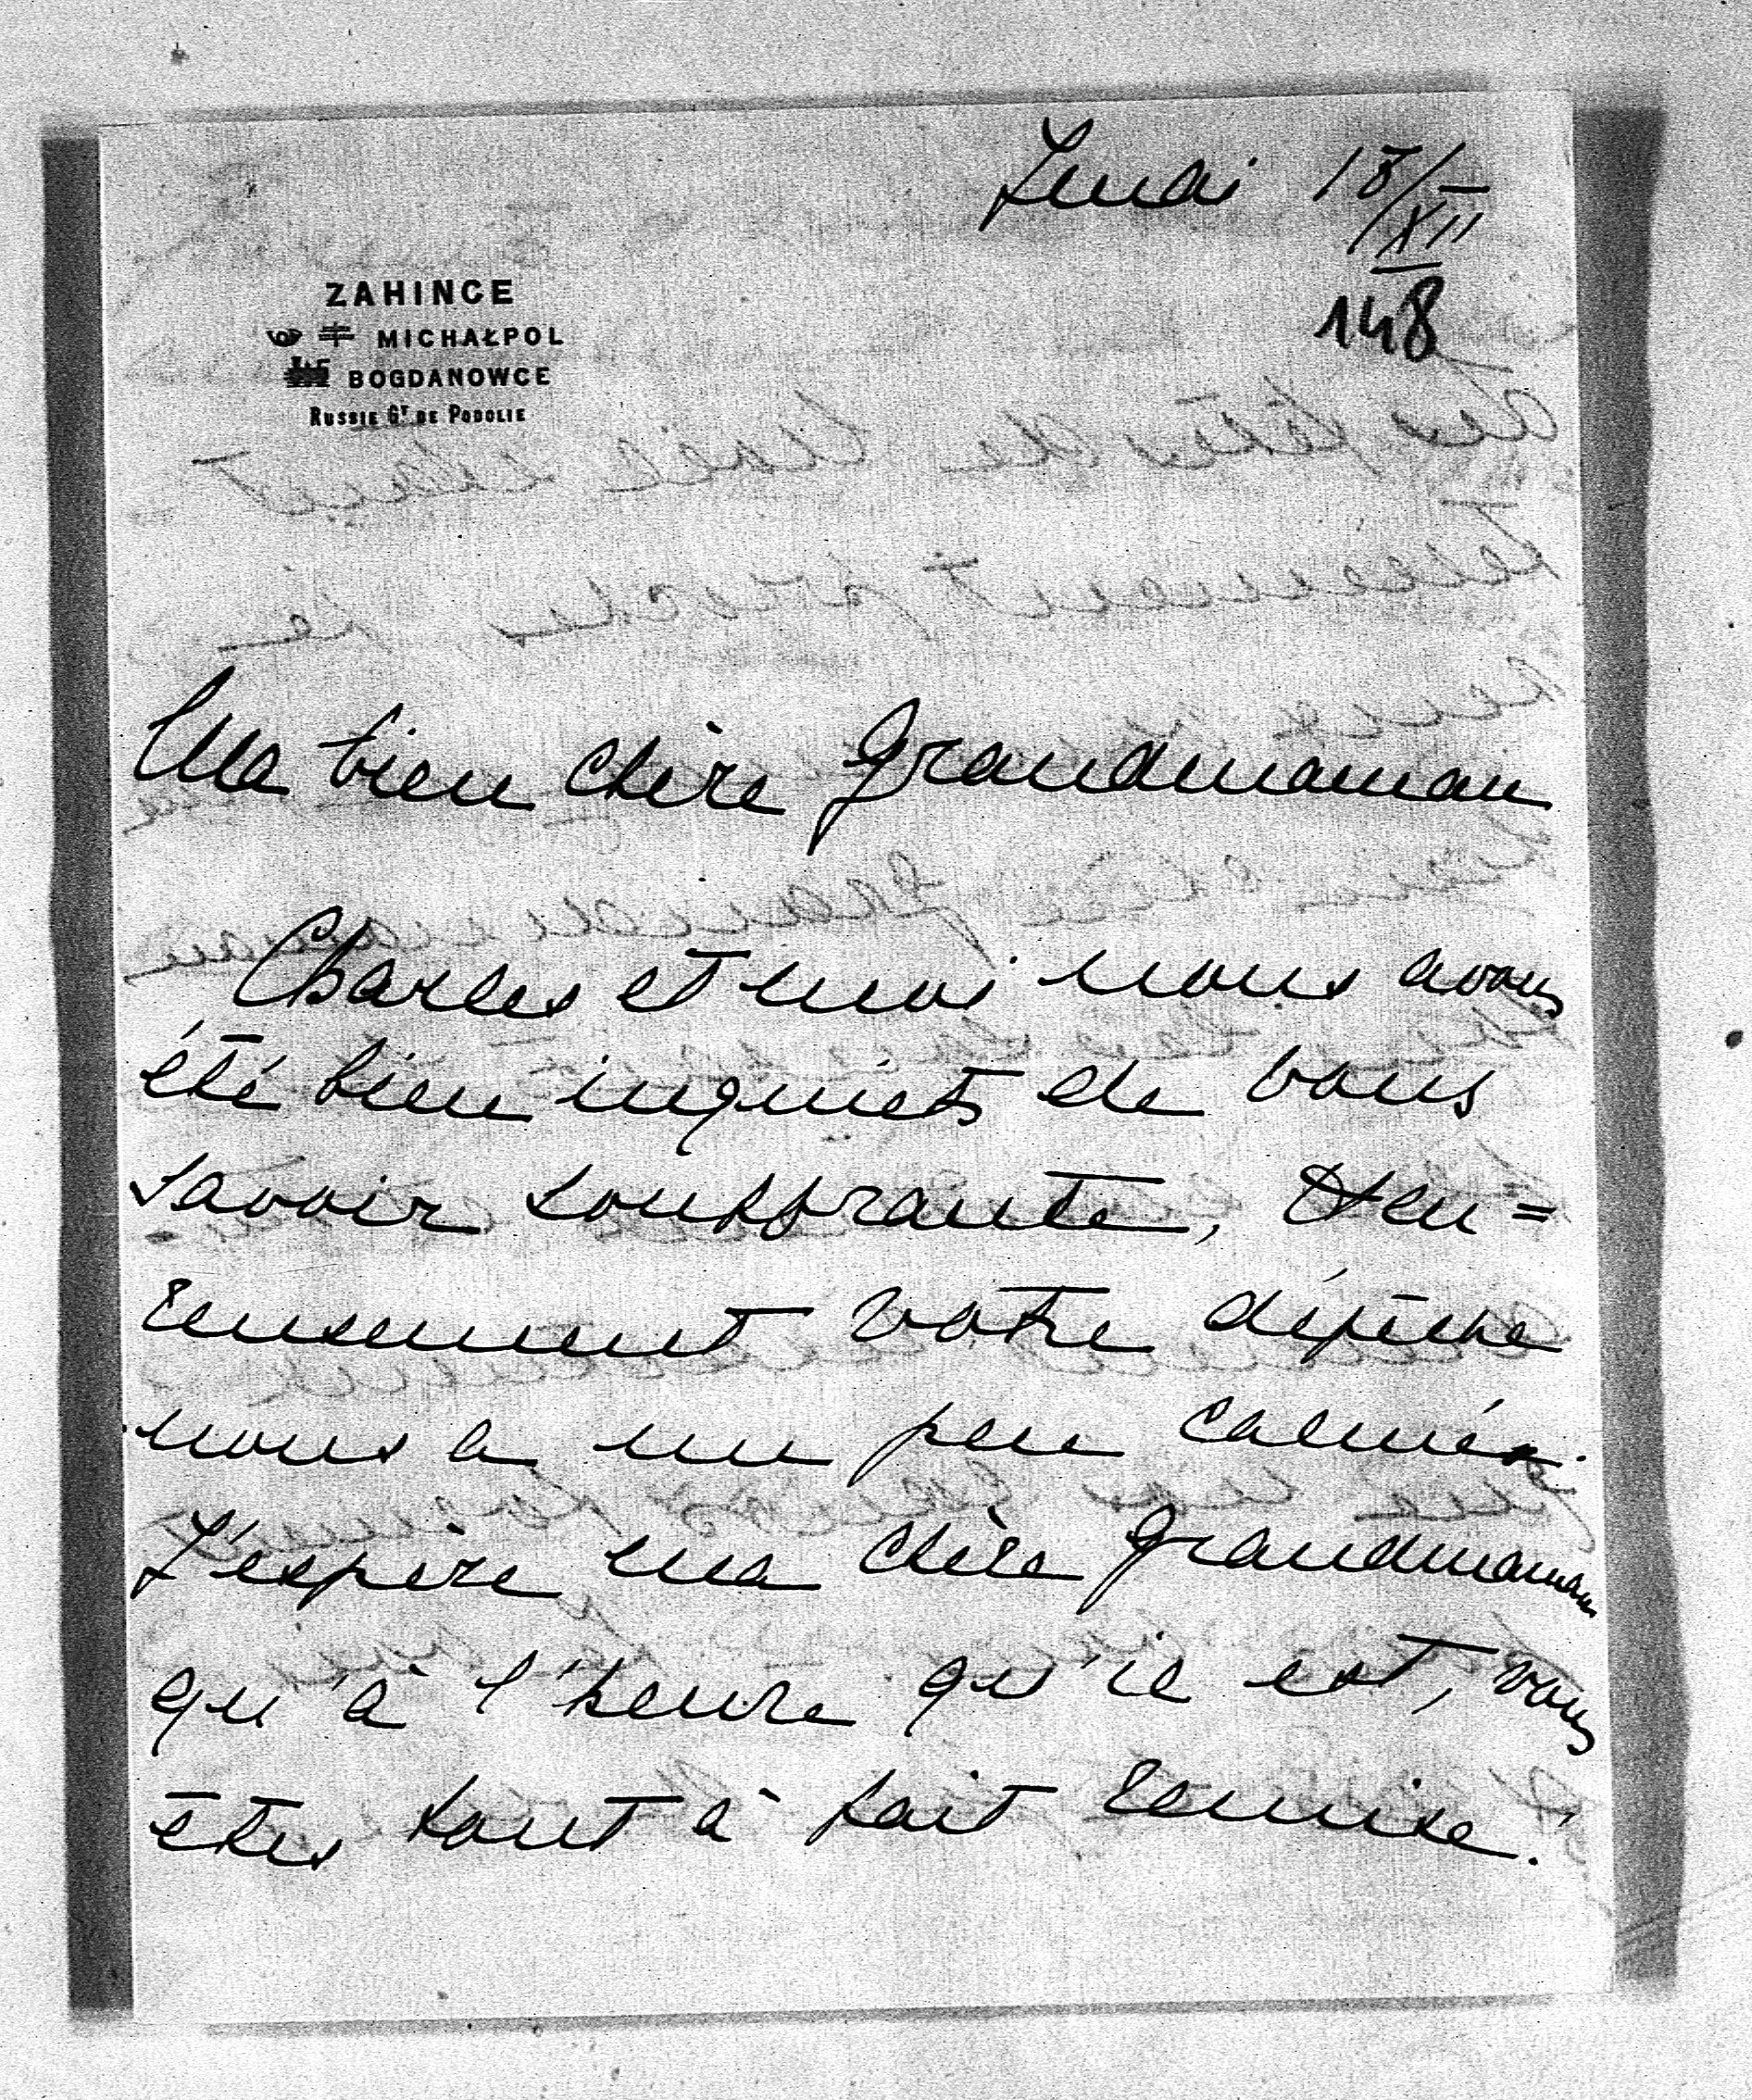 Jeudi 18/XII
148
ZAHINCE
MICHAŁPOL
BOGDANOWCE
RUSSIE Gᵗ DE PODOLIE
Ma bien chère Grandmaman
Charles et moi nous avons
été bien inquiets de vous
savoir souffrante, Heu=
reusement votre dépêche
nous a un peu calmés.
J'espère ma chère Grandmaman
qu'à l'heure qu'il est, vous
êtes tout à fait remise!